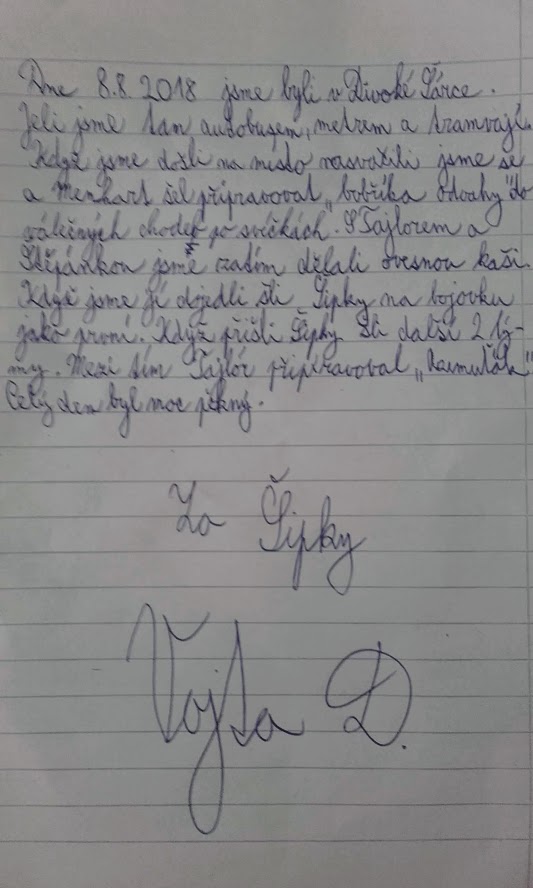 Dne 8.8. 2018 jsme byli v Divoké Šárce.
Jeli jsme tam autobusem, metrem a tramvají.
Když jsme došli na místo rozsvítili jsme se
a Menhart šel připravovat „bobříka odvahy" do
válečných chodeb po svíčkách. S Tajlorem a
Štěpánkou jsme zatím dělali ovesnou kaši.
Když jsme jí dojedli šli Šipky na bojovku
jako první. Když přišli Šipky šli další 2 tý-
my. Mezi tím Tajlor připravoval „kaumuták"
Celý den byl moc pěkný.
Za Šipky
Vojta D.